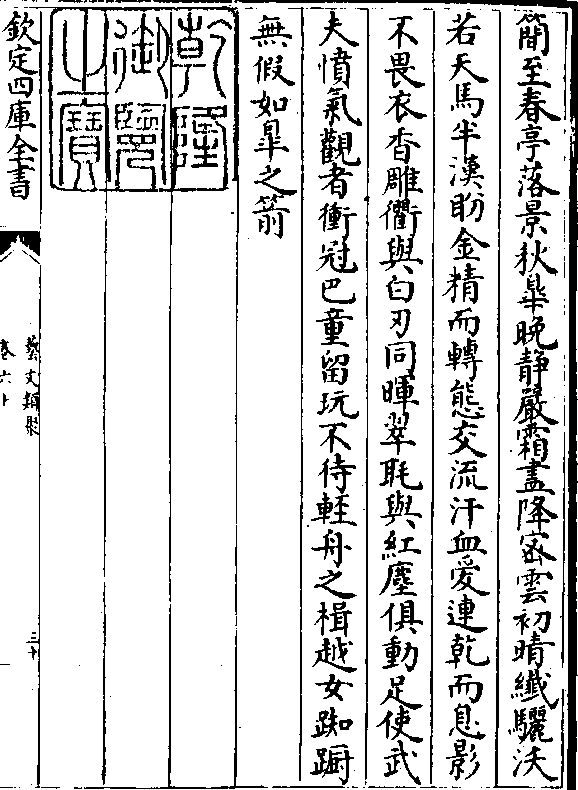 簡至春亭落景秋臯晩靜嚴霜盡降宻雲初晴纎驪沃
若天馬半漢盼金精而轉態交流汗血愛連乾而息影
不畏衣香雕衢與白刃同暉翠毦與紅塵俱動足使武
夫憤氣觀者衝冠巴童留玩不待輕舟之楫越女踟蹰
無假如臯之箭
乾隆
御覽
之寶
欽定四庫全書
藝文類聚
卷六十
三十